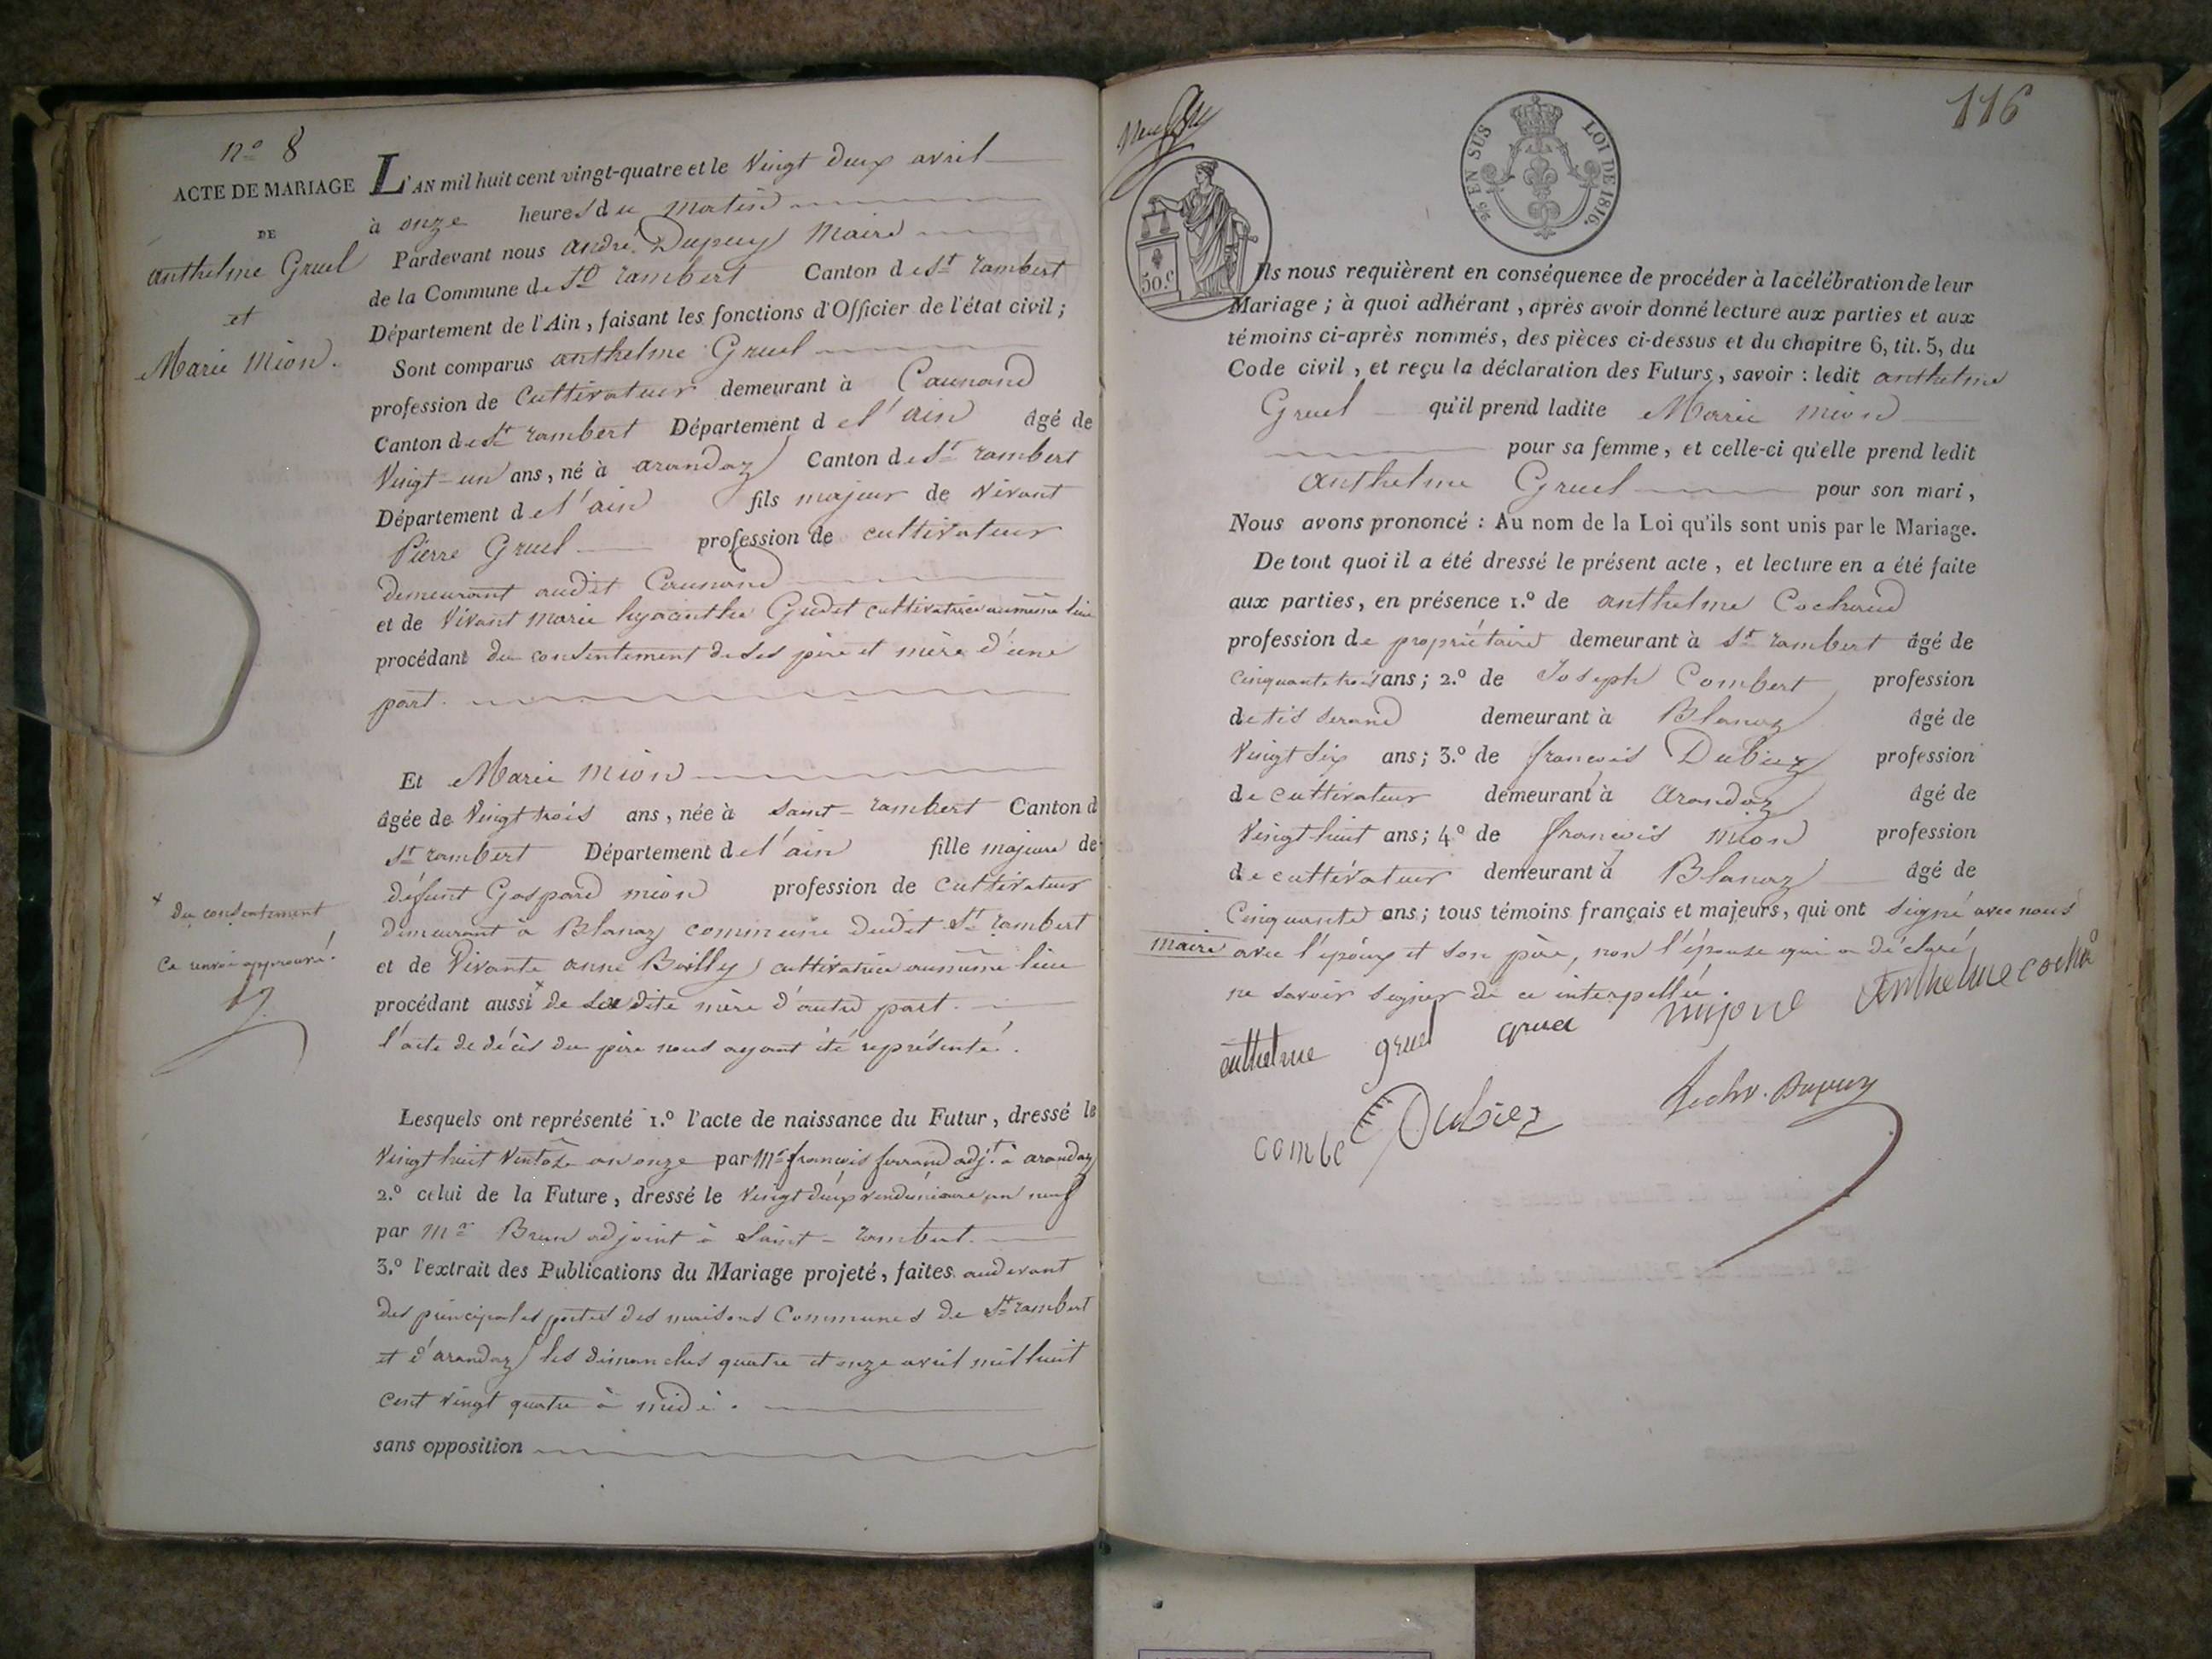 n.o 8
ACTE DE MARIAGE
DE
anthelme Gruel
et
Marie Mion.
L'AN mil huit cent vingt-quatre et le Vingt deux avril
à onze heures du matin
Pardevant nous andré Dupuy Maire
de la Commune de St rambert Canton de St rambert
Département de l'Ain, faisant les fonctions d'Officier de l'état civil;
Sont comparus anthelme Gruel
profession de Cultivateur demeurant à Counand
Canton de St rambert Département de l'ain âgé de
Vingt-un ans, né à arandaz Canton de St rambert
Département de l'ain fils majeur de vivant
Pierre Gruel profession de cultivateur
demeurant audit Counand
et de Vivant marie hyacinthe Gudet cultivatrice au même lieu
procédant du consentement de ses père et mère d'une
part.
Et Marie Mion
âgée de Vingt trois ans, née à saint-rambert Canton d
St rambert Département de l'ain fille majeure de
défunt Gaspard mion profession de Cultivateur
demeurant à Blanaz commune dudit St rambert
et de Vivante anne Bailly cultivatrice au même lieu
procédant aussi + de sa dite mère d'autre part.
l'acte de décès du père nous ayant été représenté.
+ du consentement
Ce renvoi approuvé.
Lesquels ont représenté 1.º l'acte de naissance du Futur, dressé le
Vingt huit Ventôse an onze par Mr francois ferrand adj.t à arandaz
2.º celui de la Future, dressé le Vingt deux vendémiaire an neuf
par Mr Brun adjoint à Saint-rambert.
3.º l'extrait des Publications du Mariage projeté, faites audevant
des principales portes des maisons Communes de St rambert
et d'arandaz les dimanches quatre et onze avril mil huit
cent vingt quatre à midi.
sans opposition
116
EN SUS LOI DE 1816.
50.c
Ils nous requièrent en conséquence de procéder à la célébration de leur
Mariage; à quoi adhérant, après avoir donné lecture aux parties et aux
témoins ci-après nommés, des pièces ci-dessus et du chapitre 6, tit. 5, du
Code civil, et reçu la déclaration des Futurs, savoir: ledit anthelme
Gruel qu'il prend ladite Marie mion
pour sa femme, et celle-ci qu'elle prend ledit
anthelme Gruel pour son mari,
Nous avons prononcé: Au nom de la Loi qu'ils sont unis par le Mariage.
De tout quoi il a été dressé le présent acte, et lecture en a été faite
aux parties, en présence 1.º de anthelme Cochaud
profession de propriétaire demeurant à St rambert âgé de
cinquante trois ans; 2.º de Joseph Combert profession
de tisserand demeurant à Blanaz âgé de
Vingt six ans; 3.º de francois Dubiez profession
de cultivateur demeurant à arandaz âgé de
Vingt huit ans; 4.º de francois mion profession
de cultivateur demeurant à Blanaz âgé de
Cinquante ans; tous témoins français et majeurs, qui ont signé avec nous
maire avec l'époux et son père, non l'épouse qui a déclaré
ne savoir signer de ce interpellée.
anthelme gruel gruel mijone Anthelme cocho
combe Dubiez Dupuy